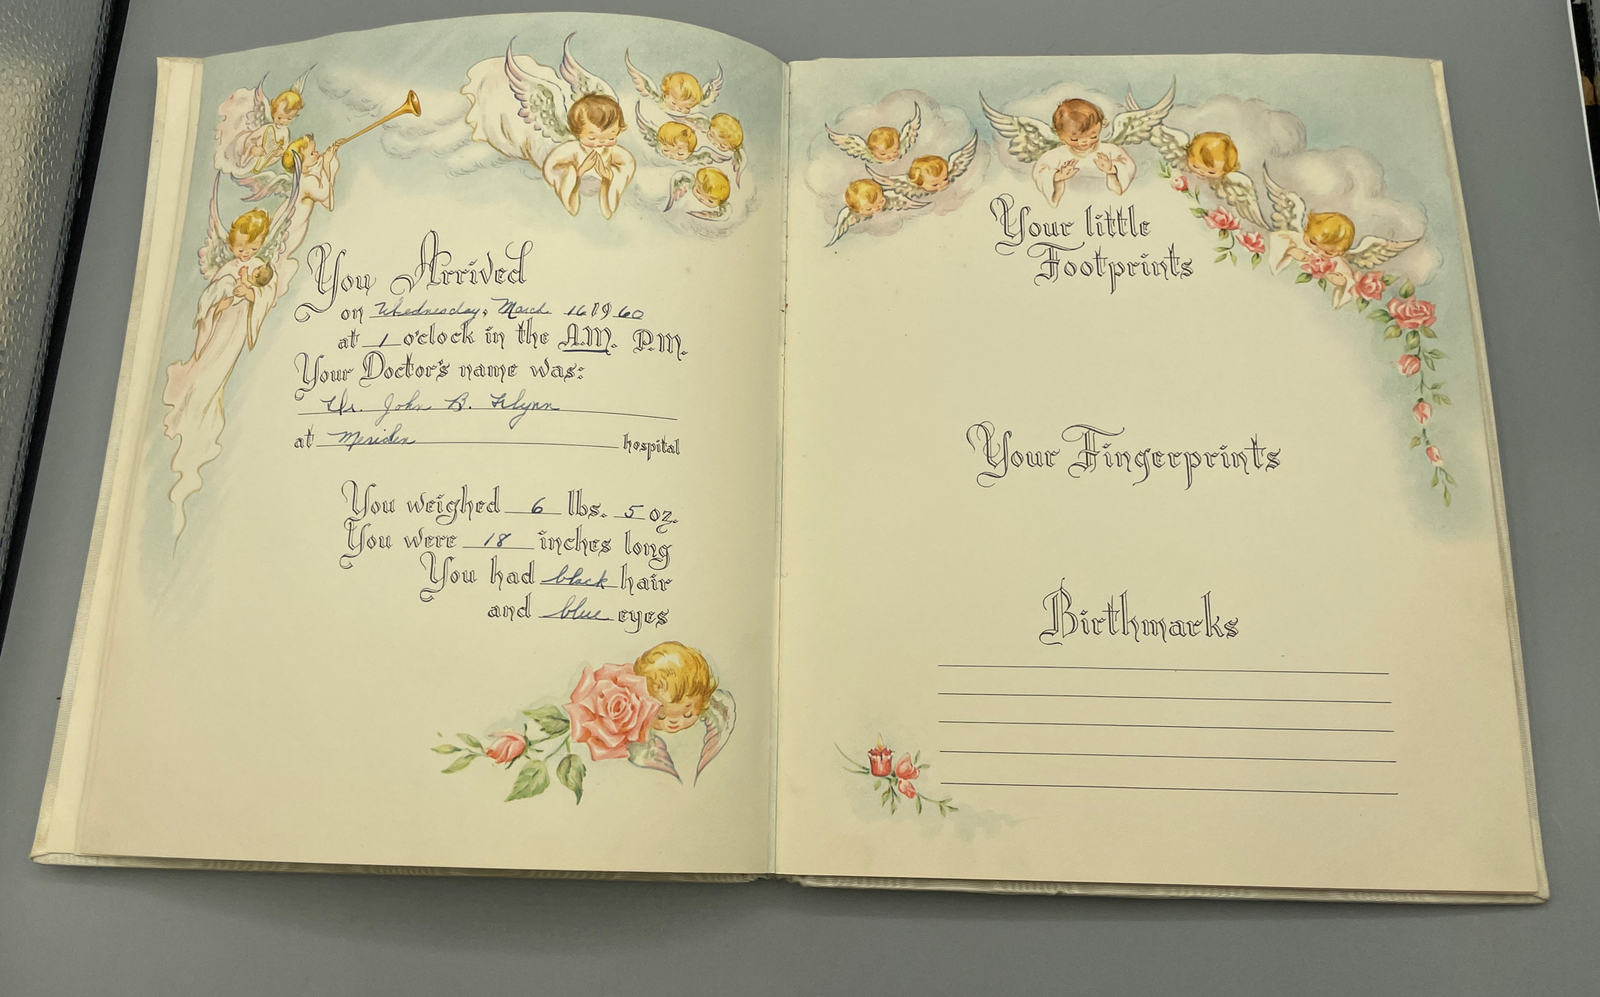 You Arrived
on Wednesday, March 16 1960
at 1 o'clock in the A.M. P.M.
Your Doctor's name was:
Dr. John B. Flynn
at Meriden hospital
You weighed 6 lbs. 5 oz.
You were 18 inches long
You had black hair
and blue eyes
Your little
Footprints
Your Fingerprints
Birthmarks